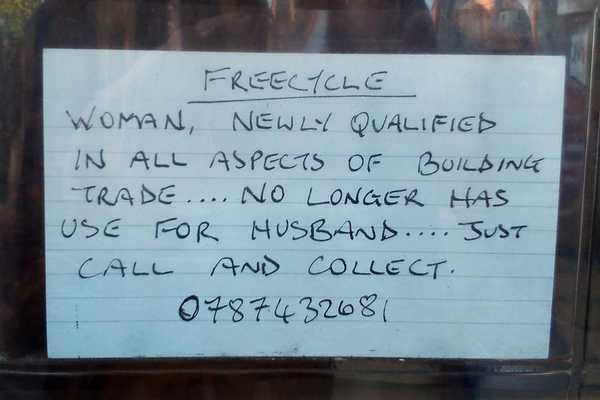 FREECYCLE
WOMAN, NEWLY QUALIFIED
IN ALL ASPECTS OF BUILDING
TRADE.... NO LONGER HAS
USE FOR HUSBAND.... JUST
CALL AND COLLECT.
0787432681